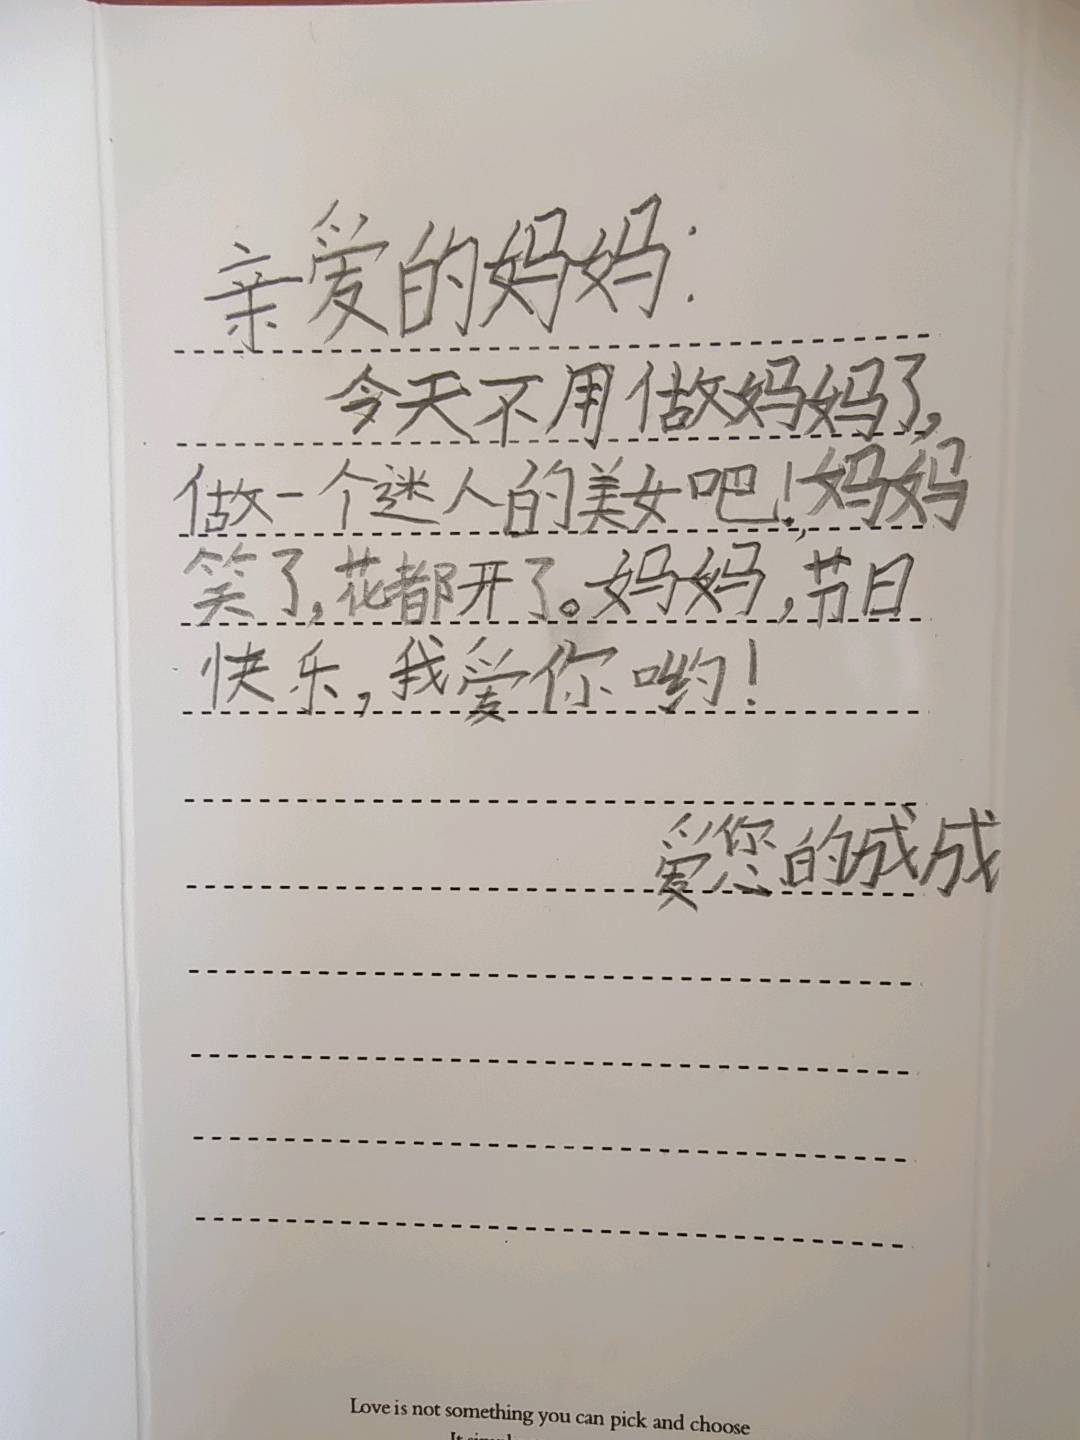 亲爱的妈妈:
今天不用做妈妈了,
做一个迷人的美女吧!妈妈
笑了,花都开了。妈妈,节日
快乐,我爱你哟!
爱您的成成
Love is not something you can pick and choose